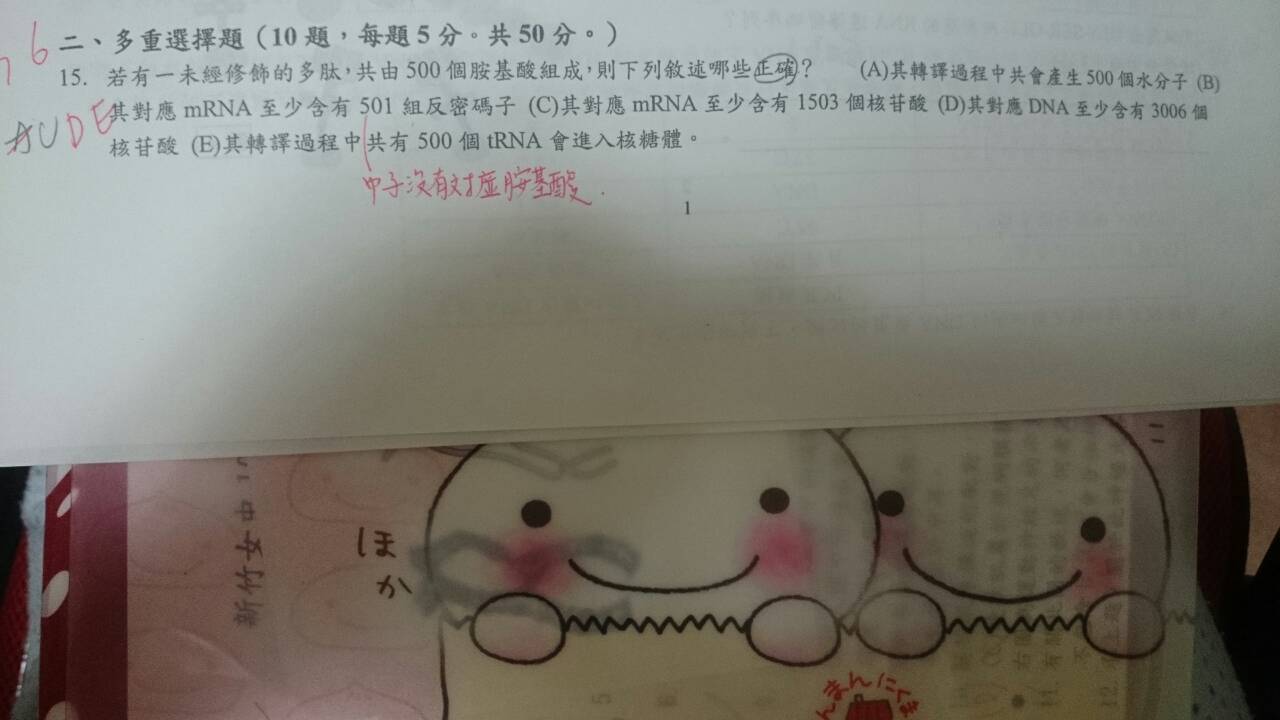 二、多重選擇題（10 題，每題 5 分。共 50 分。）
15. 若有一未經修飾的多肽，共由 500 個胺基酸組成，則下列敘述哪些正確？ (A)其轉譯過程中共會產生 500 個水分子 (B)
其對應 mRNA 至少含有 501 組反密碼子 (C)其對應 mRNA 至少含有 1503 個核苷酸 (D)其對應 DNA 至少含有 3006 個
核苷酸 (E)其轉譯過程中共有 500 個 tRNA 會進入核糖體。
DE
子沒有對應胺基酸.
1
ほ
か
新竹女中
11.
12.